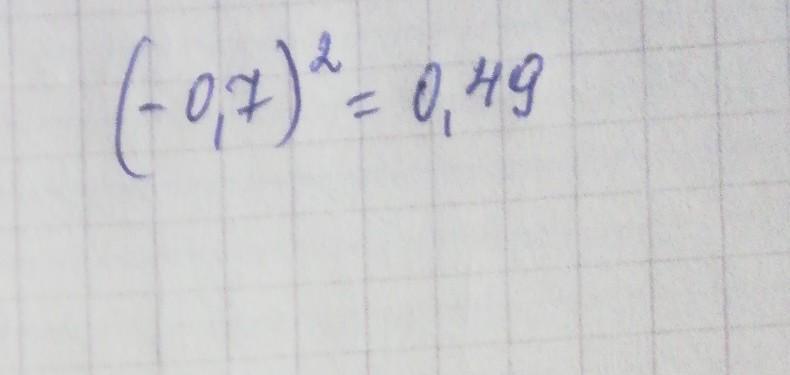 (-0,7)² = 0,49